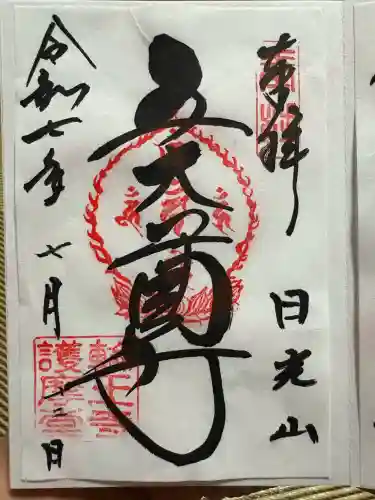 奉拝
日光山
五大尊
令和七年
七月
十二日
護摩堂